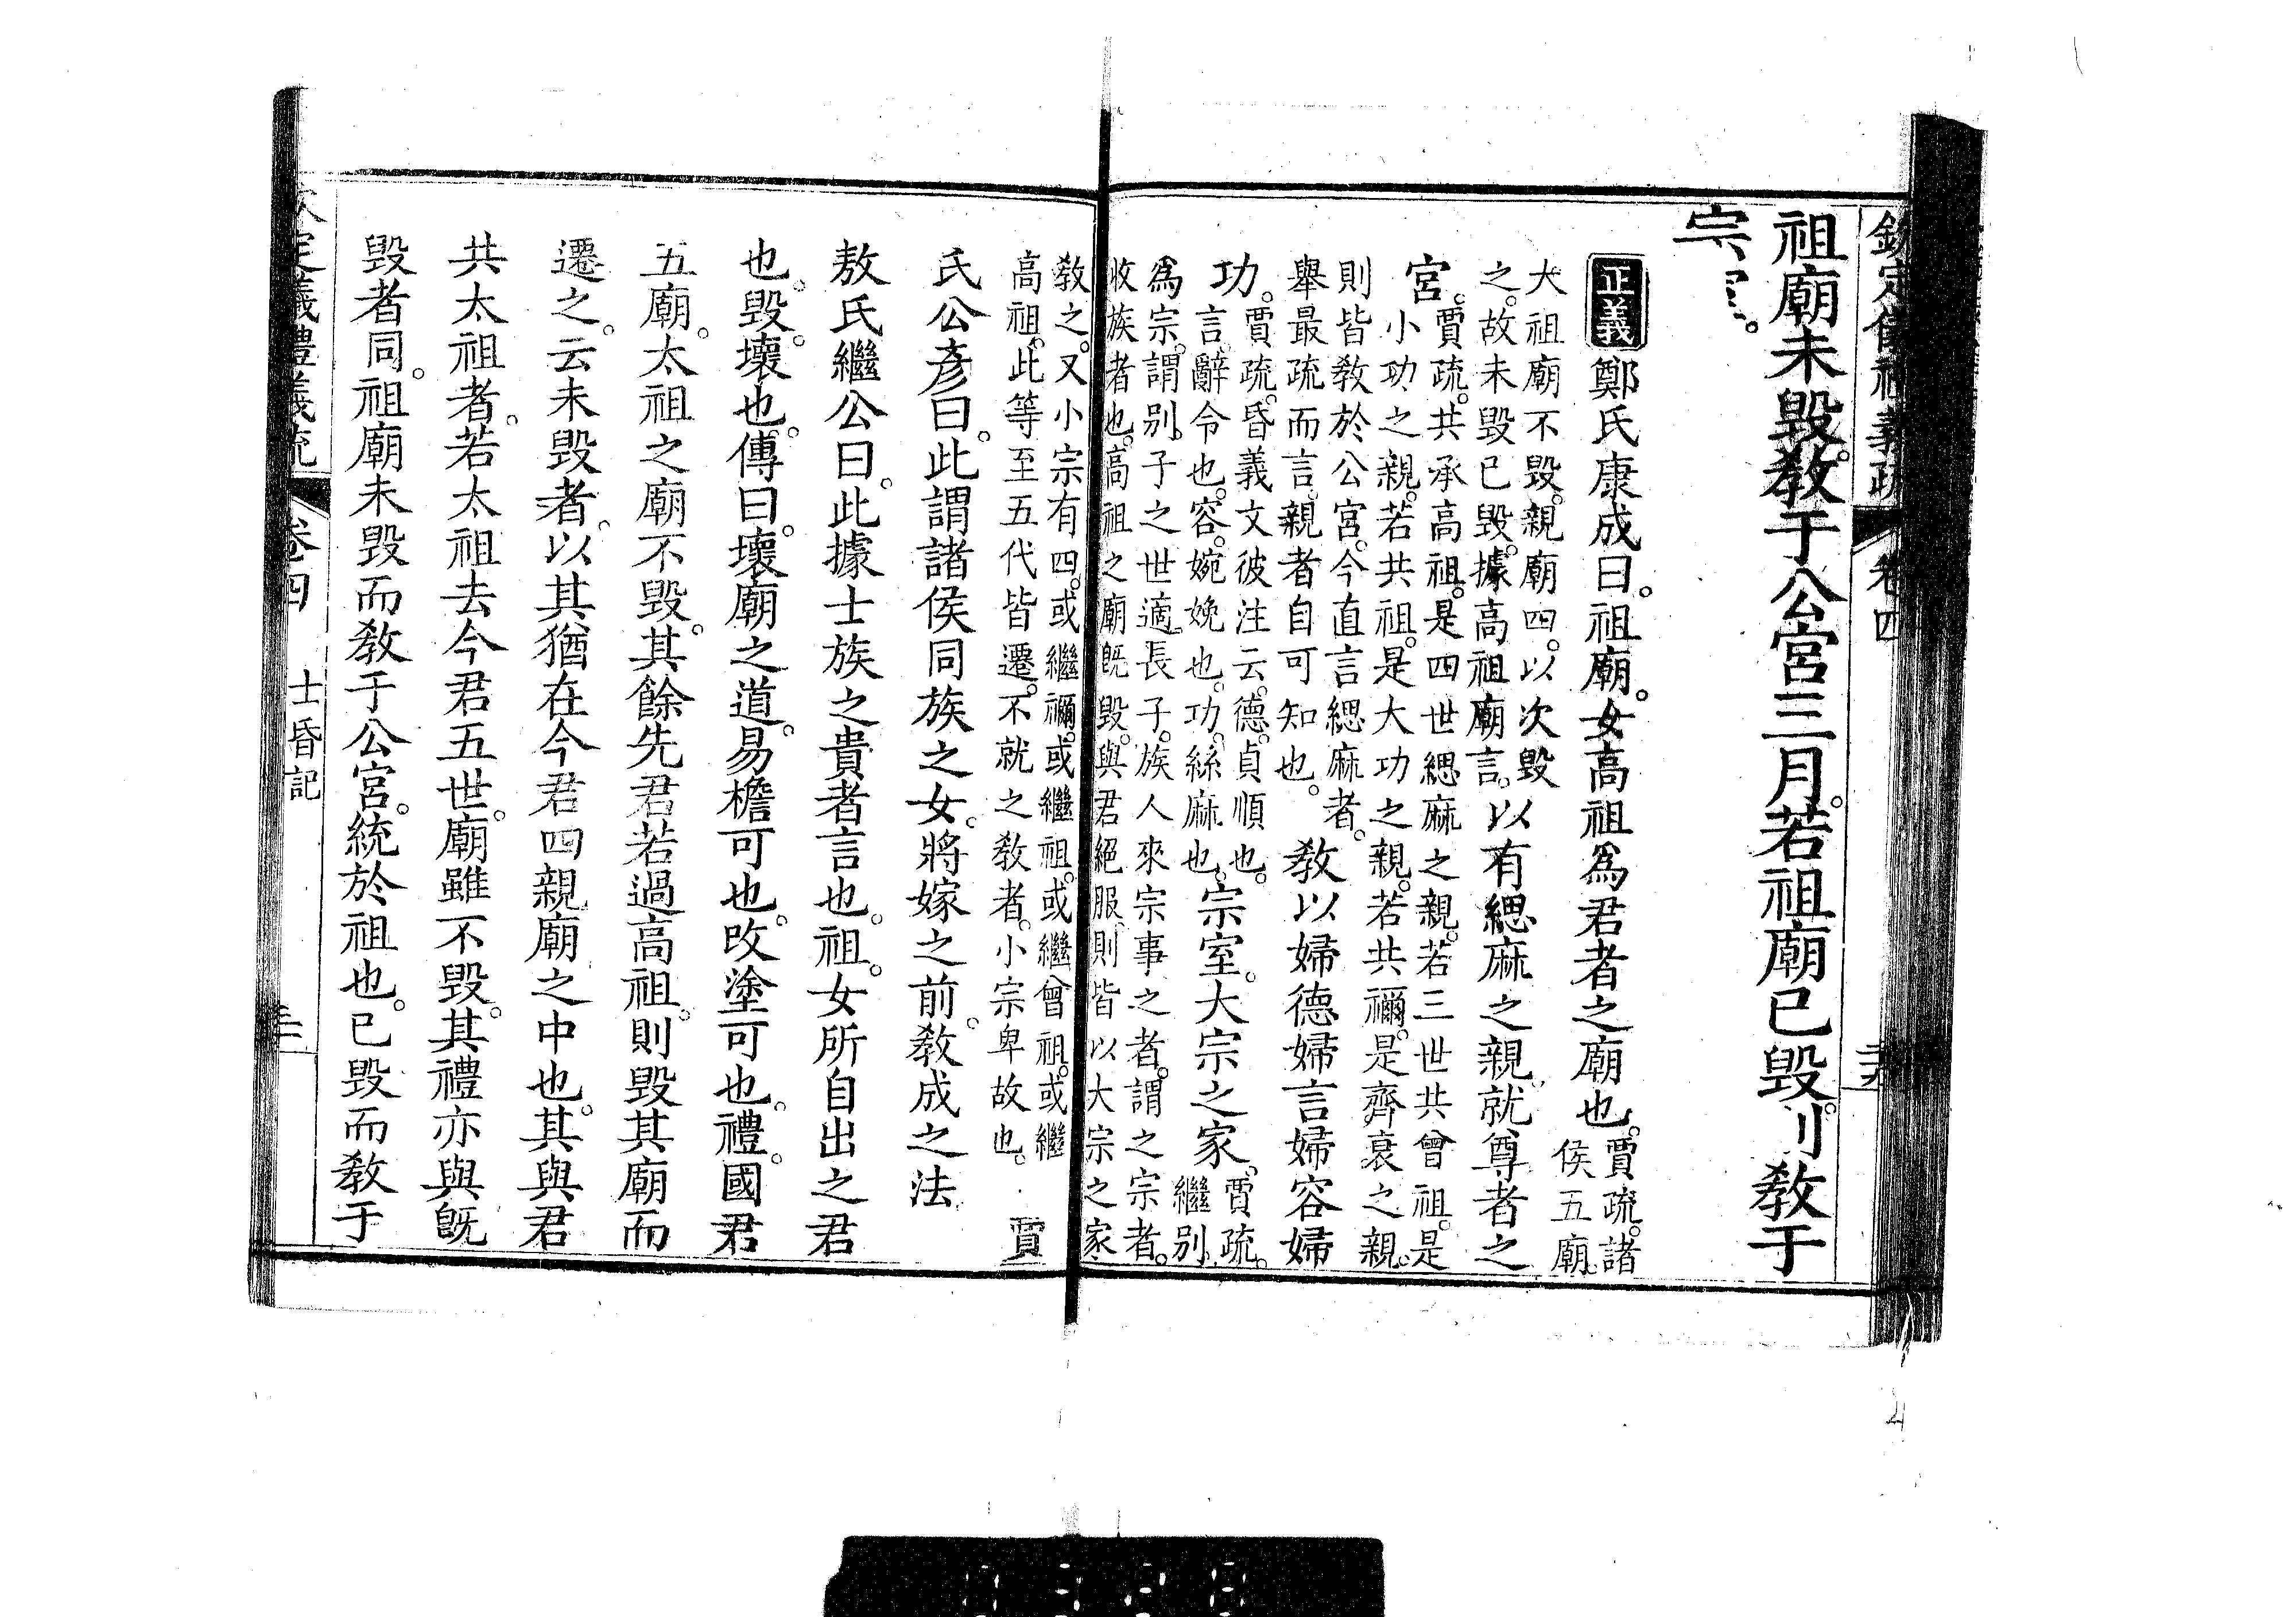 欽定儀禮義疏 卷四
祖廟未毀。教于公宮三月。若祖廟已毀。則教于
宗室。
正義 鄭氏康成曰。祖廟。女高祖爲君者之廟也。賈疏。諸侯五廟。
大祖廟不毀。親廟四。以次毀之。故未毀已毀。據高祖廟言。以有緦麻之親就尊者之
宮。賈疏。共承高祖。是四世緦麻之親。若三世共曾祖。是小功之親。若共祖。是大功之親。若共禰。是齊衰之親。
則皆教於公宮。今直言緦麻者。舉最疏而言。親者自可知也。教以婦德婦言婦容婦
功。賈疏。昏義文彼注云。德。貞順也。言。辭令也。容。婉娩也。功。絲麻也。宗室。大宗之家。賈疏。繼别
爲宗。謂别。子之世適。長子。族人來宗事之者。謂之宗者。收族者也。高祖之廟既毀。與君絕服。則皆以大宗之家
教之。又小宗有四。或繼禰。或繼祖。或繼曾祖。或繼高祖。此等至五代皆遷。不就之教者。小宗卑故也。賈
氏公彥曰。此謂諸侯同族之女。將嫁之前。教成之法
敖氏繼公曰。此據士族之貴者言也。祖。女所自出之君
也。毀。壞也。傳曰。壞廟之道。易檐可也。改塗可也。禮。國君
五廟。太祖之廟不毀。其餘先君若過高祖。則毀其廟而
遷之。云未毀者。以其猶在今君四親廟之中也。其與君
共太祖者。若太祖去今君五世。廟雖不毀。其禮亦與既
毀者同。祖廟未毀而教于公宮。統於祖也。已毀而教于
欽定儀禮義疏 卷四 士昏記